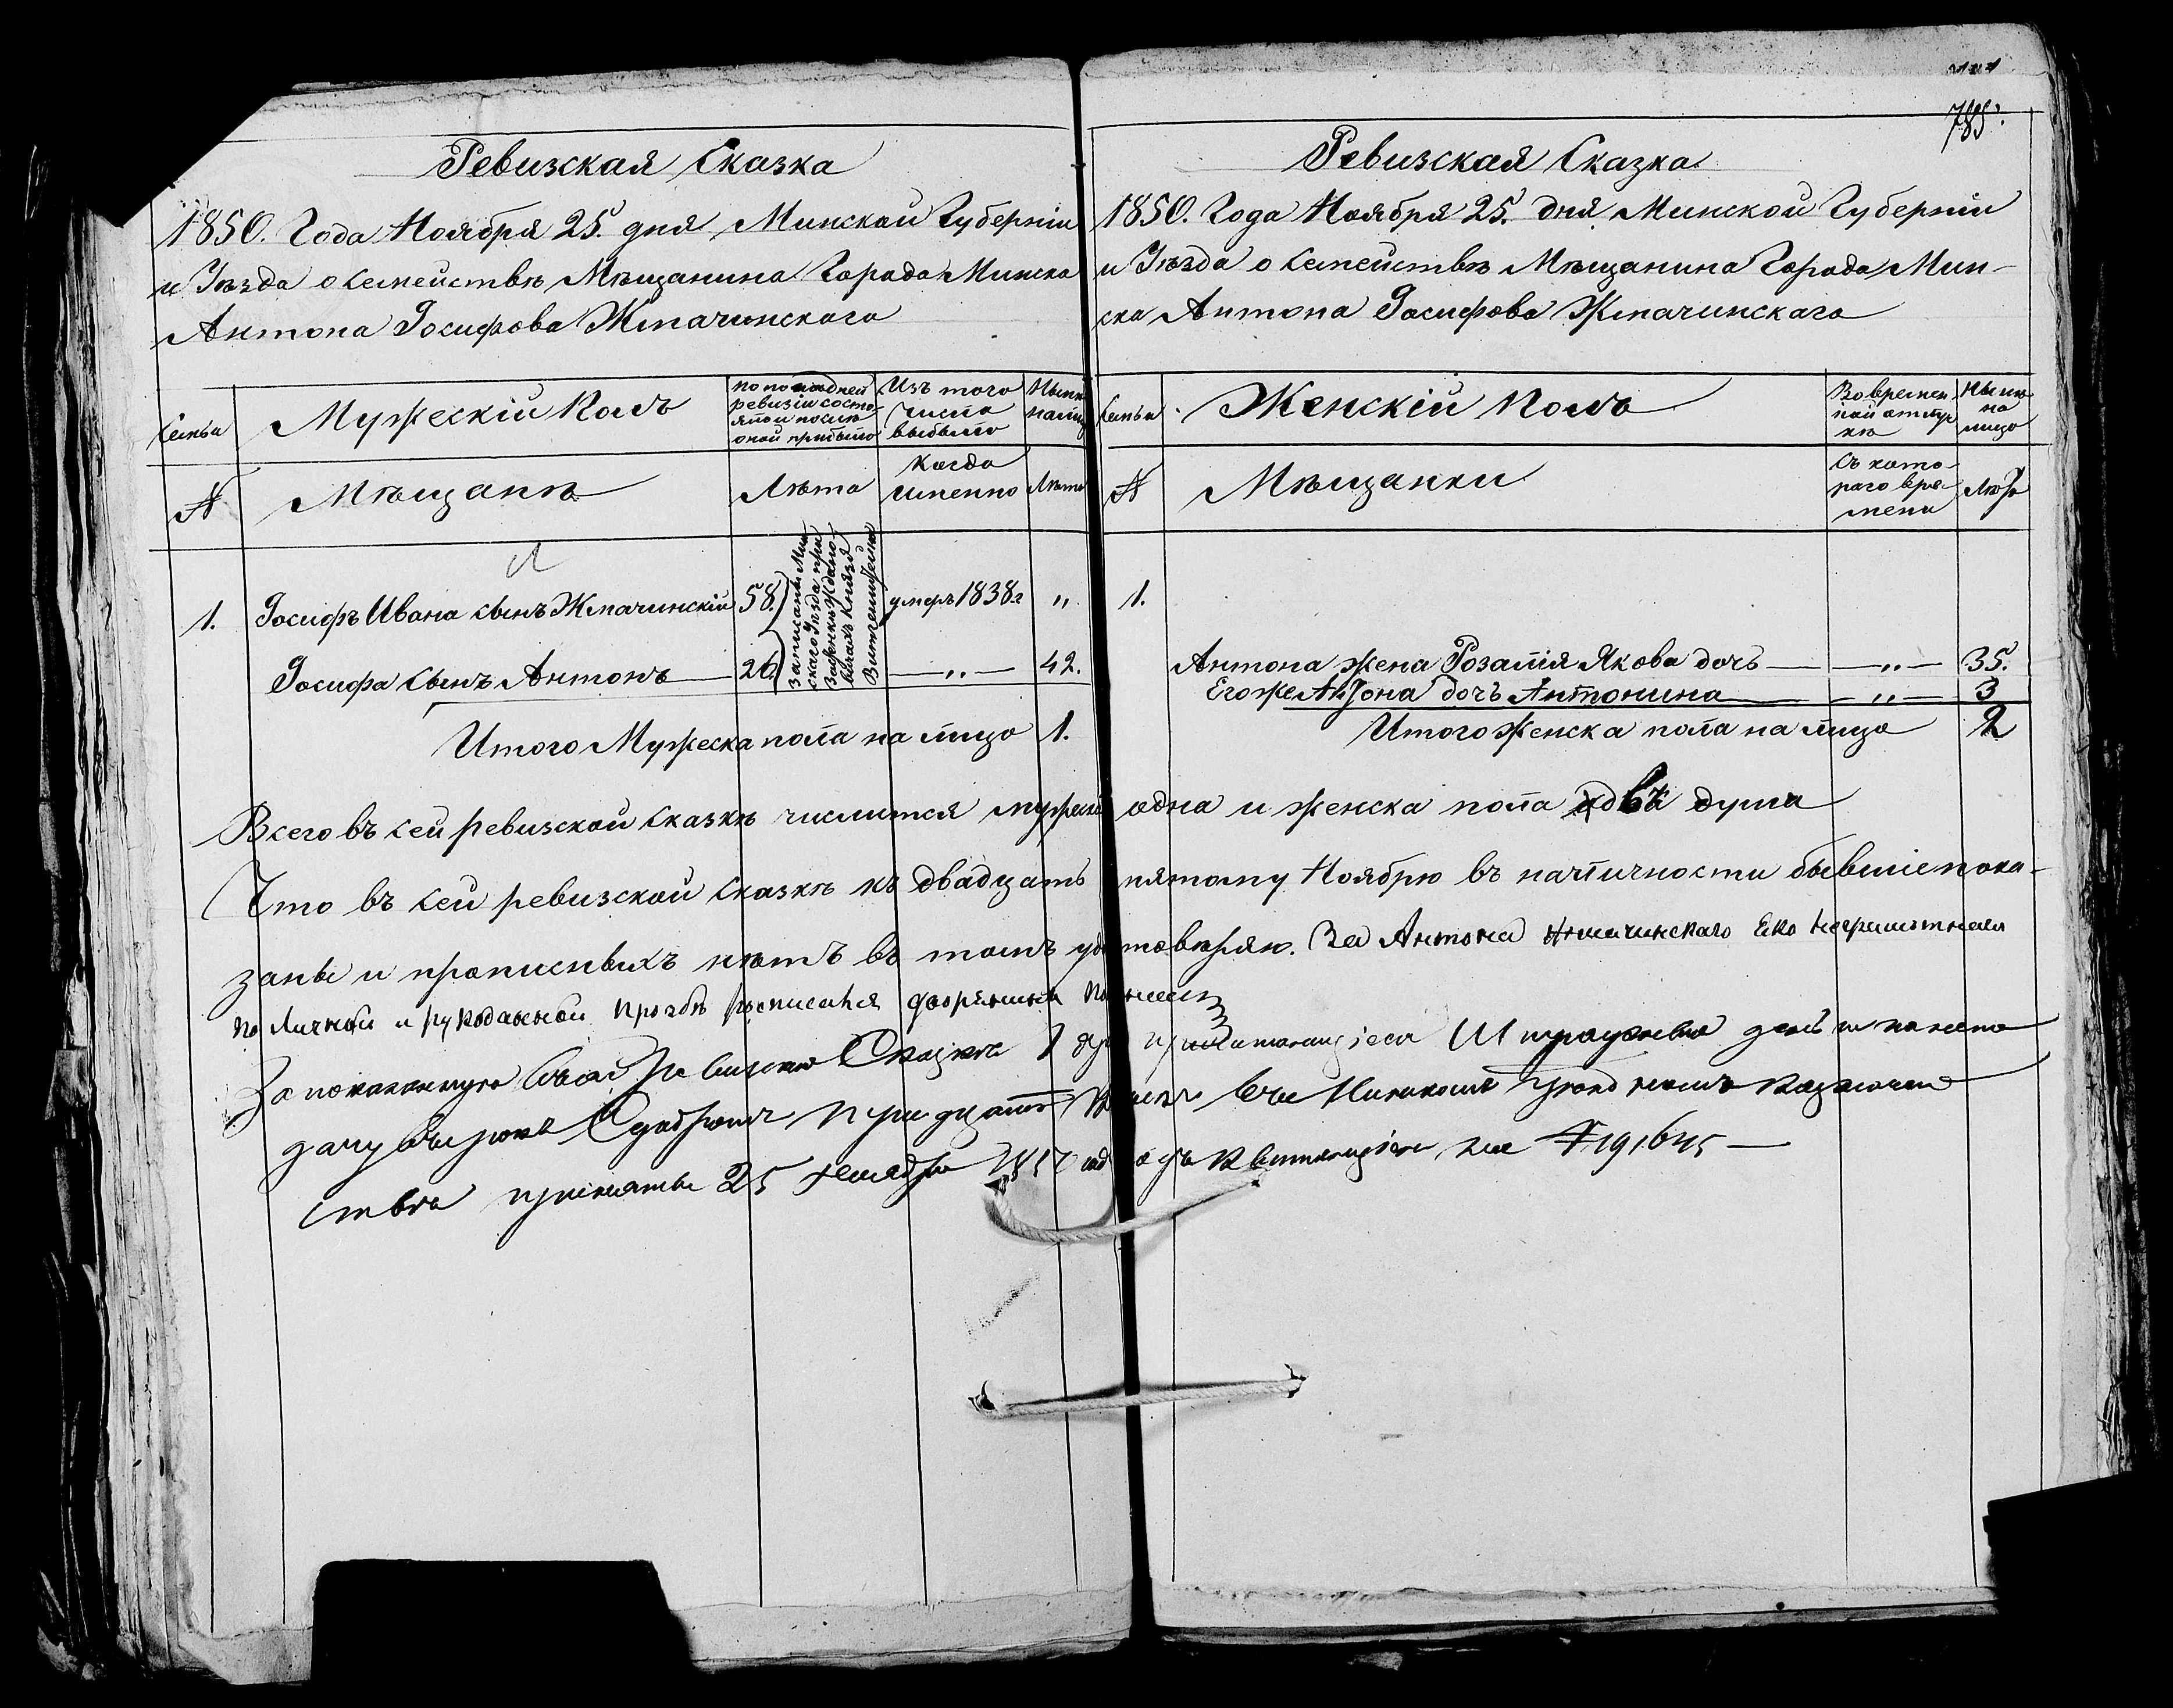 785.
Ревизская Сказка
1850. Года Ноября 25. дня Минской Губерніи
и Уѣзда о семействѣ Мѣщанина Города Минска
Антона Іосифова Жмачинскаго
Семьи
Мужескій Полъ
по последней
ревизіи состо-
яло и послѣ
оной прибыло
Изъ того
числа
выбыло
Нынѣ
налицо
№
Мѣщанѣ
Лѣта
Когда
именно
Лѣта
1. Іосифъ Ивана сынъ Жмачинскій 58. умеръ 1838 г „
Іосифа сынъ Антонъ 26 — „ — 42.
записаны Мин
скаго Уѣзда при
Князя
Витгенштейна
Итого Мужеска пола на лицо 1.
Ревизская Сказка
1850. Года Ноября 25. дня Минской Губерніи
и Уѣзда о семействѣ Мѣщанина Города Мин-
ска Антона Іосифова Жмачинскаго
Семьи
Женскій Полъ
Во времен
ной отлуч
кѣ
Нынѣ
на
лицо
№
Мѣщанки
Съ кото-
раго вре-
мени
Лѣта
1.
Антона жена Розалія Якова дочь — „ — 35.
Егоже Антона дочь Антонина — „ — 3
Итого Женска пола на лицо 2
Всего въ сей ревизской сказкѣ числится мужеска одна и женска пола двѣ душа
Что въ сей ревизской сказкѣ къ двадцать пятому Ноябрю въ наличности бывшіе пока-
заны и прописныхъ нѣтъ въ томъ удостовѣряю. За Антона Жмачинскаго неграмотнаго
по личной и рукоданной прозбѣ росписался дворянинъ
За показанную въ сей Ревизской Сказкѣ 1 душу Штрафныя деньги
дачу въ срокъ Казначей
ствѣ приняты 25 Ноября 1850 года съ квитанціею № 19,645 —